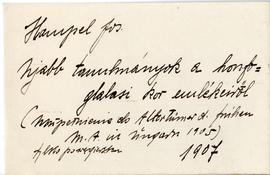 Hampel Jos.
Ujabb tanulmányok a honfo-
glalasi kor emlékeiről
( des Altertümer d. frühen
M. A in Ungarn 1905)
1907